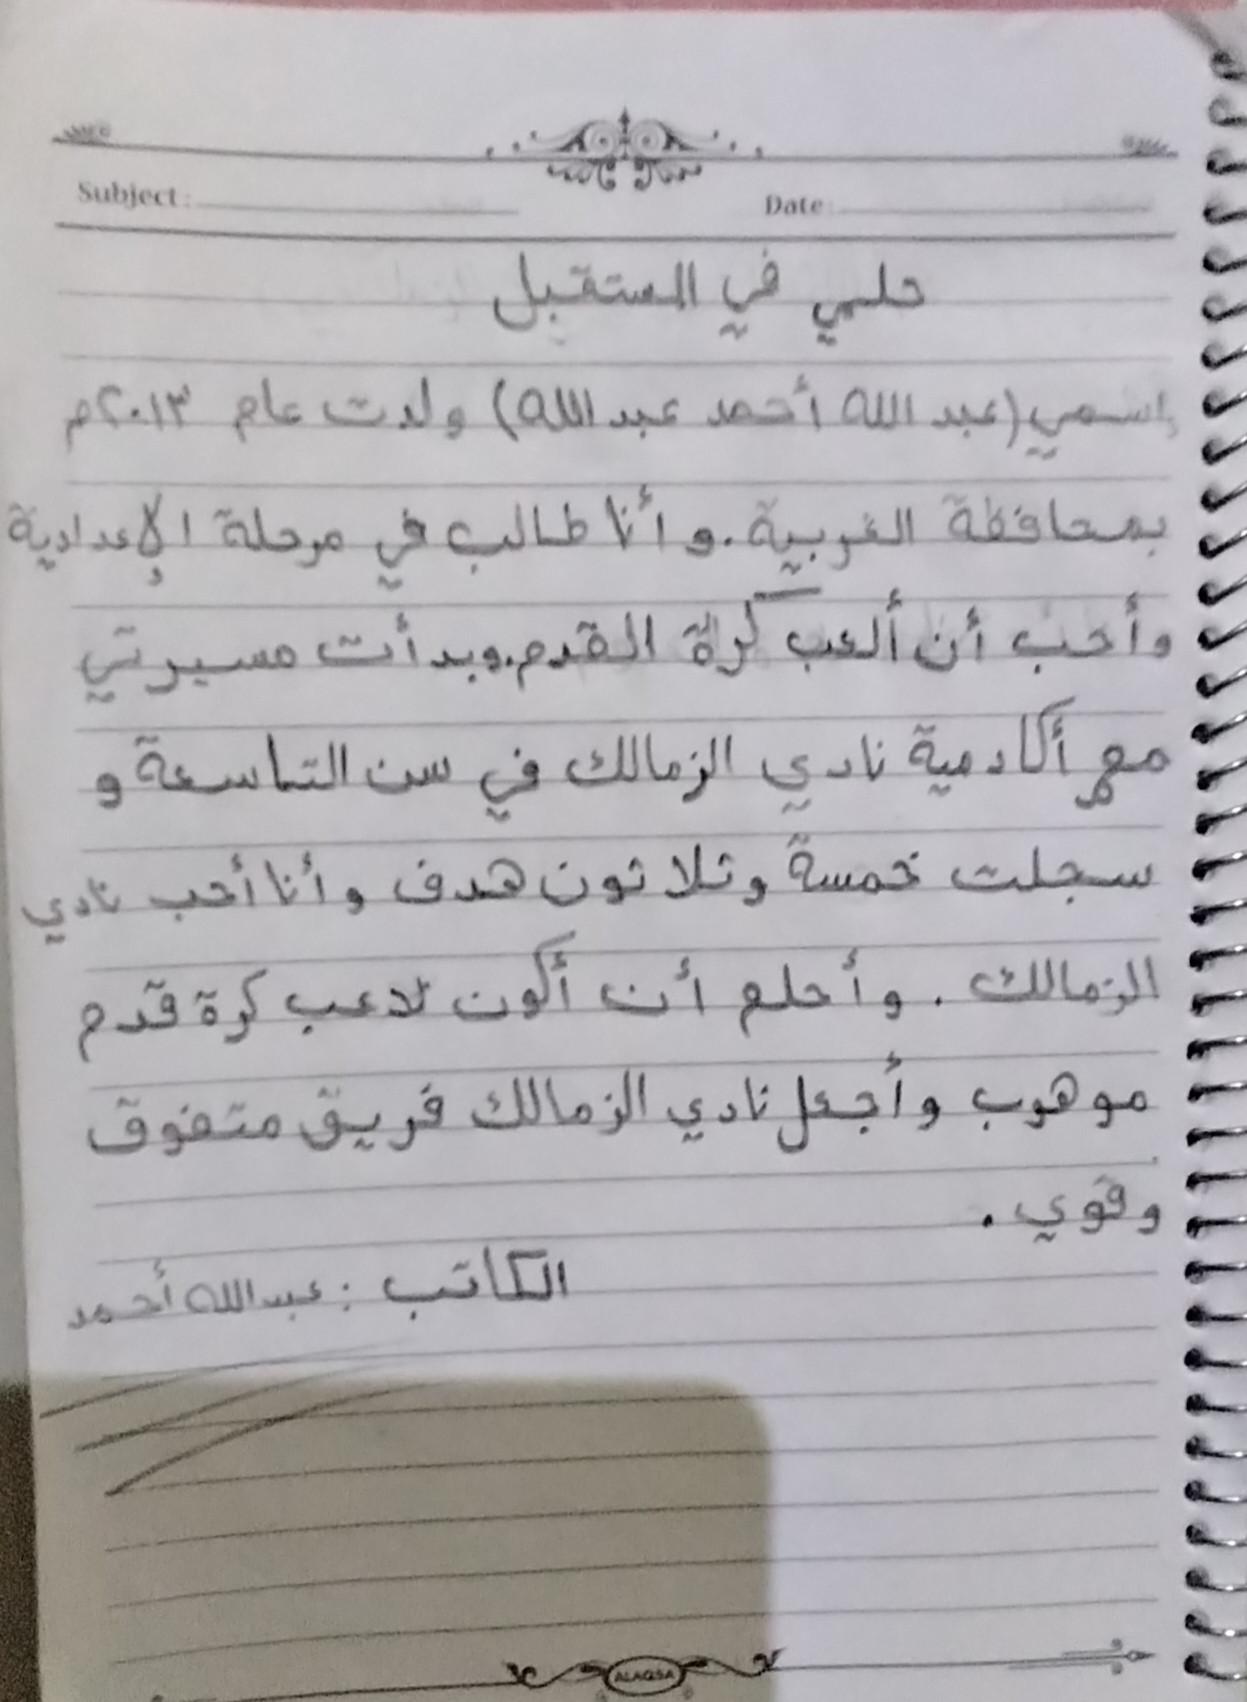 Subject:
Date:
حلمي في المستقبل
إسمي (عبد الله أحمد عبد الله) ولدت عام ٢٠١٣م
بمحافظة الغربية. و أنا طالب في مرحلة الإعدادية
وأحب أن ألعب كرة القدم. وبدأت مسيرتي
مع أكادمية نادي الزمالك في سن التاسعة و
سجلت خمسة وثلاثون هدف و أنا أحب نادي
الزمالك . وأحلم أن أكون لاعب كرة قدم
موهوب وأجعل نادي الزمالك فريق متفوق
وقوي .
الكاتب : عبدالله أحمد
ALAQSA